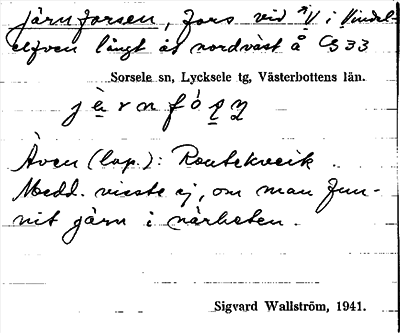 Järnforsen, fors vid "V i Vindel-
elfven långt åt nordväst å CS 33
Sorsele sn, Lycksele tg, Västerbottens län.
j ä r n f ó
Även (lap.): Routekveik.
Medd. visste ej, om man fun-
nit järn i närheten.
Sigvard Wallström, 1941.